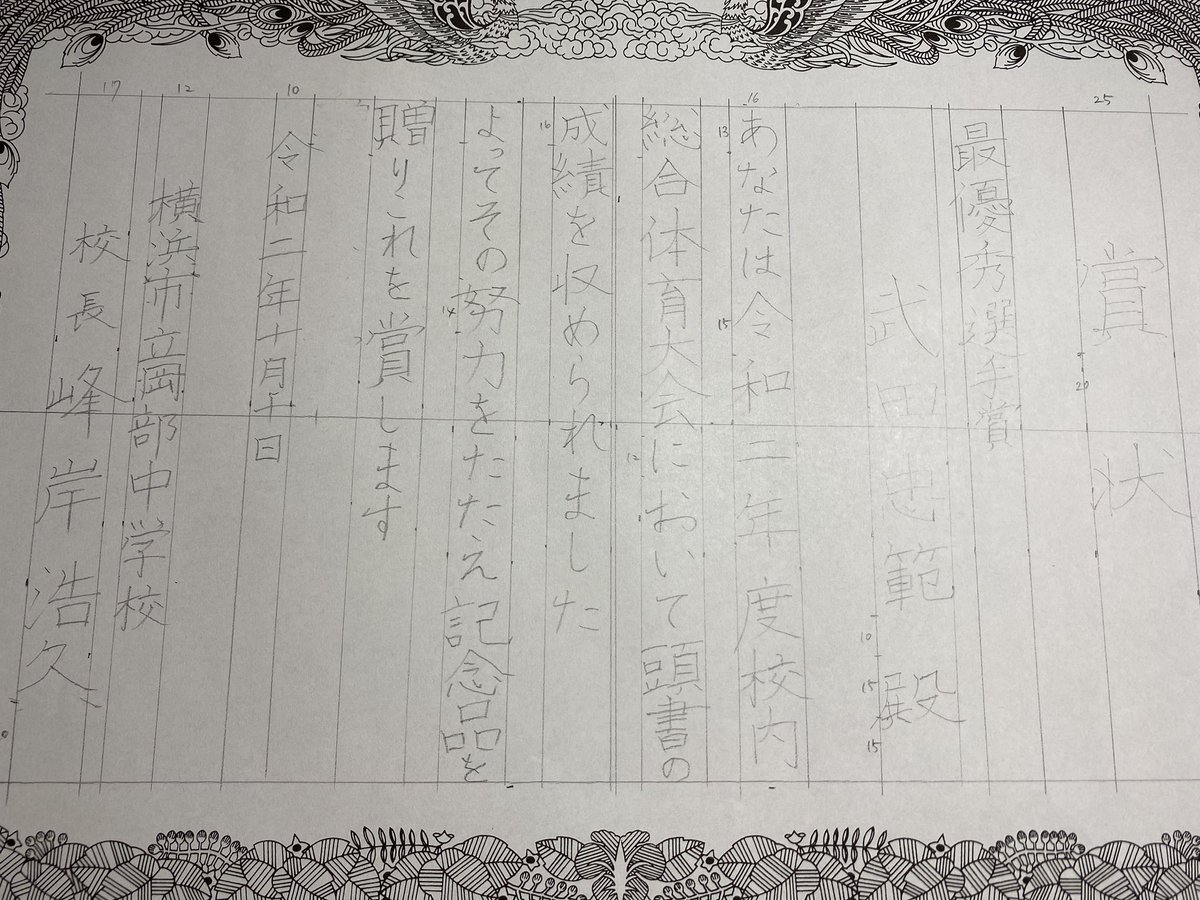 賞状
最優秀選手賞
武田忠範殿
あなたは令和二年度校内
総合体育大会において頭書の
成績を収められました
よってその努力をたたえ記念品を
贈りこれを賞します
令和二年十月十日
横浜市立岡部中学校
校長峰岸浩久
25
16
13
15
16
12
14
10
12
17
20
10
15
15